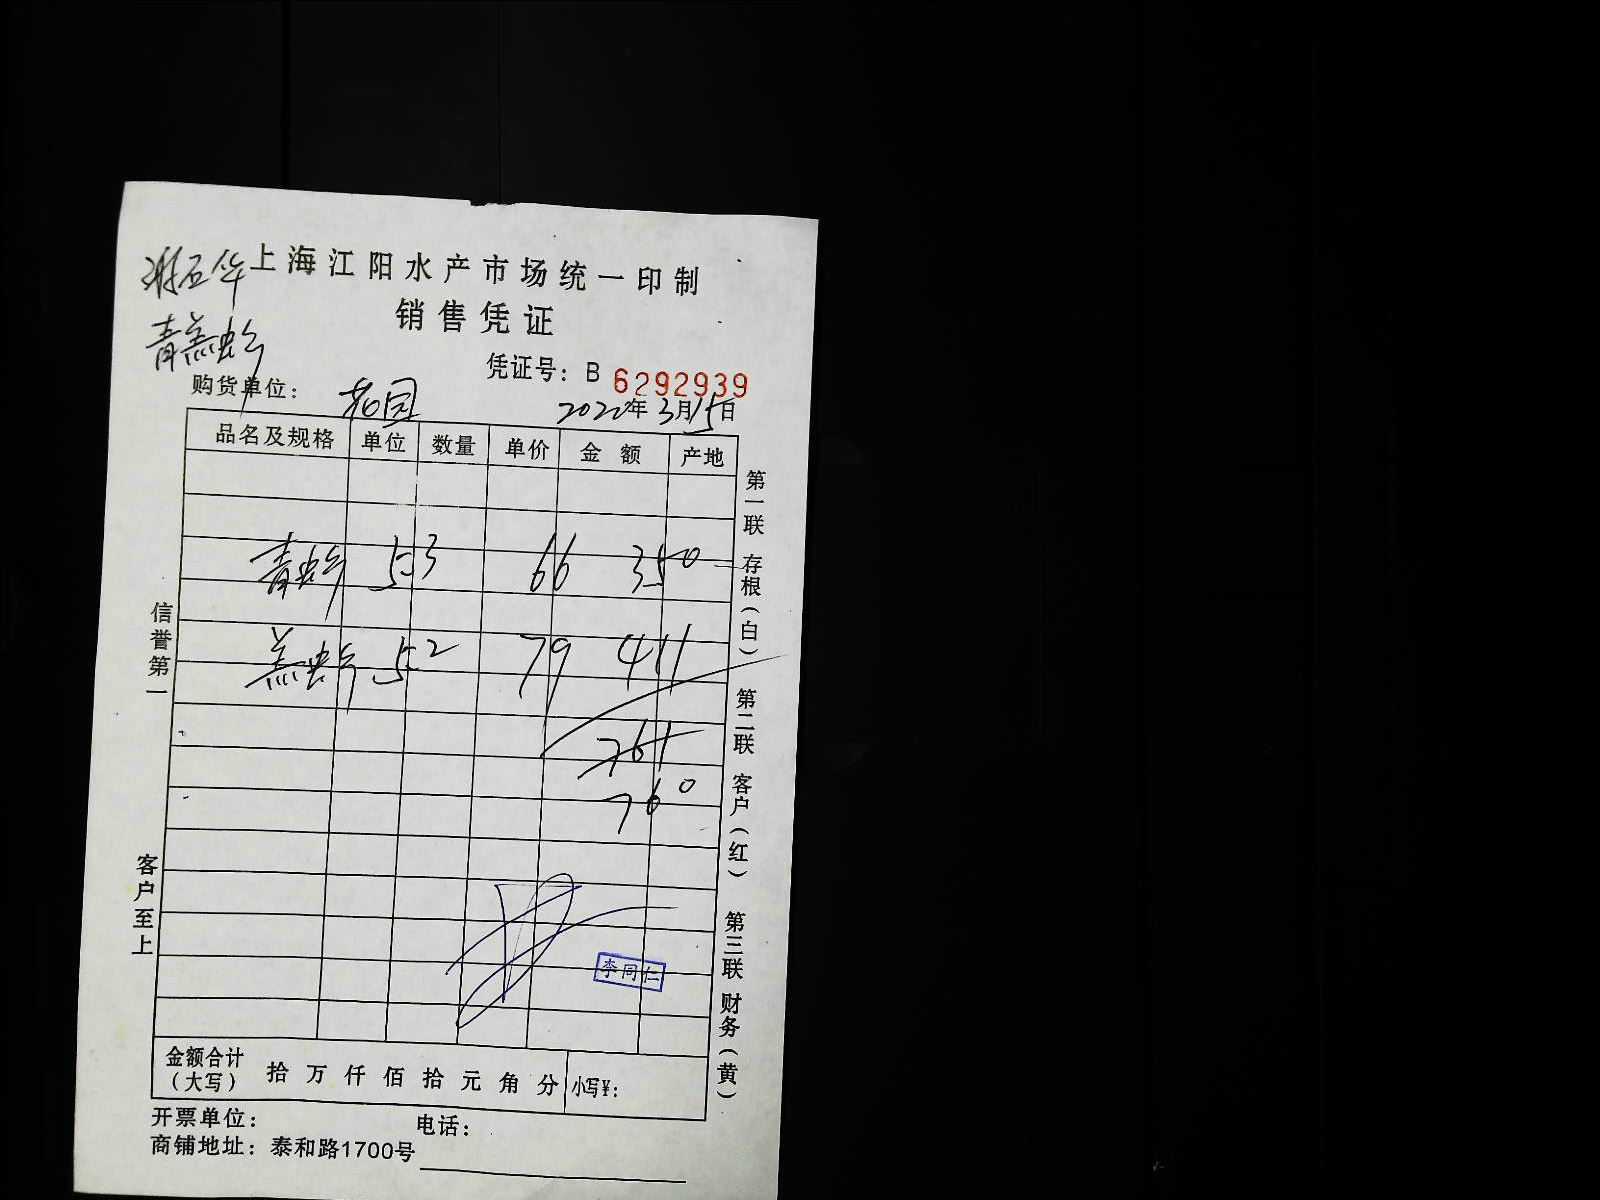 上海江阳水产市场统一印制
销售凭证
青羔蟹
凭证号：B 6292939
购货单位：花园
2022年3月15日
品名及规格 单位 数量 单价 金额 产地
青 53 66 350
羔 52 79 411
761
760
李同仁
金额合计（大写） 拾 万 仟 佰 拾 元 角 分 小写¥：
开票单位： 电话：
商铺地址：泰和路1700号
信誉第一
客户至上
第一联 存根（白） 第二联 客户（红） 第三联 财务（黄）